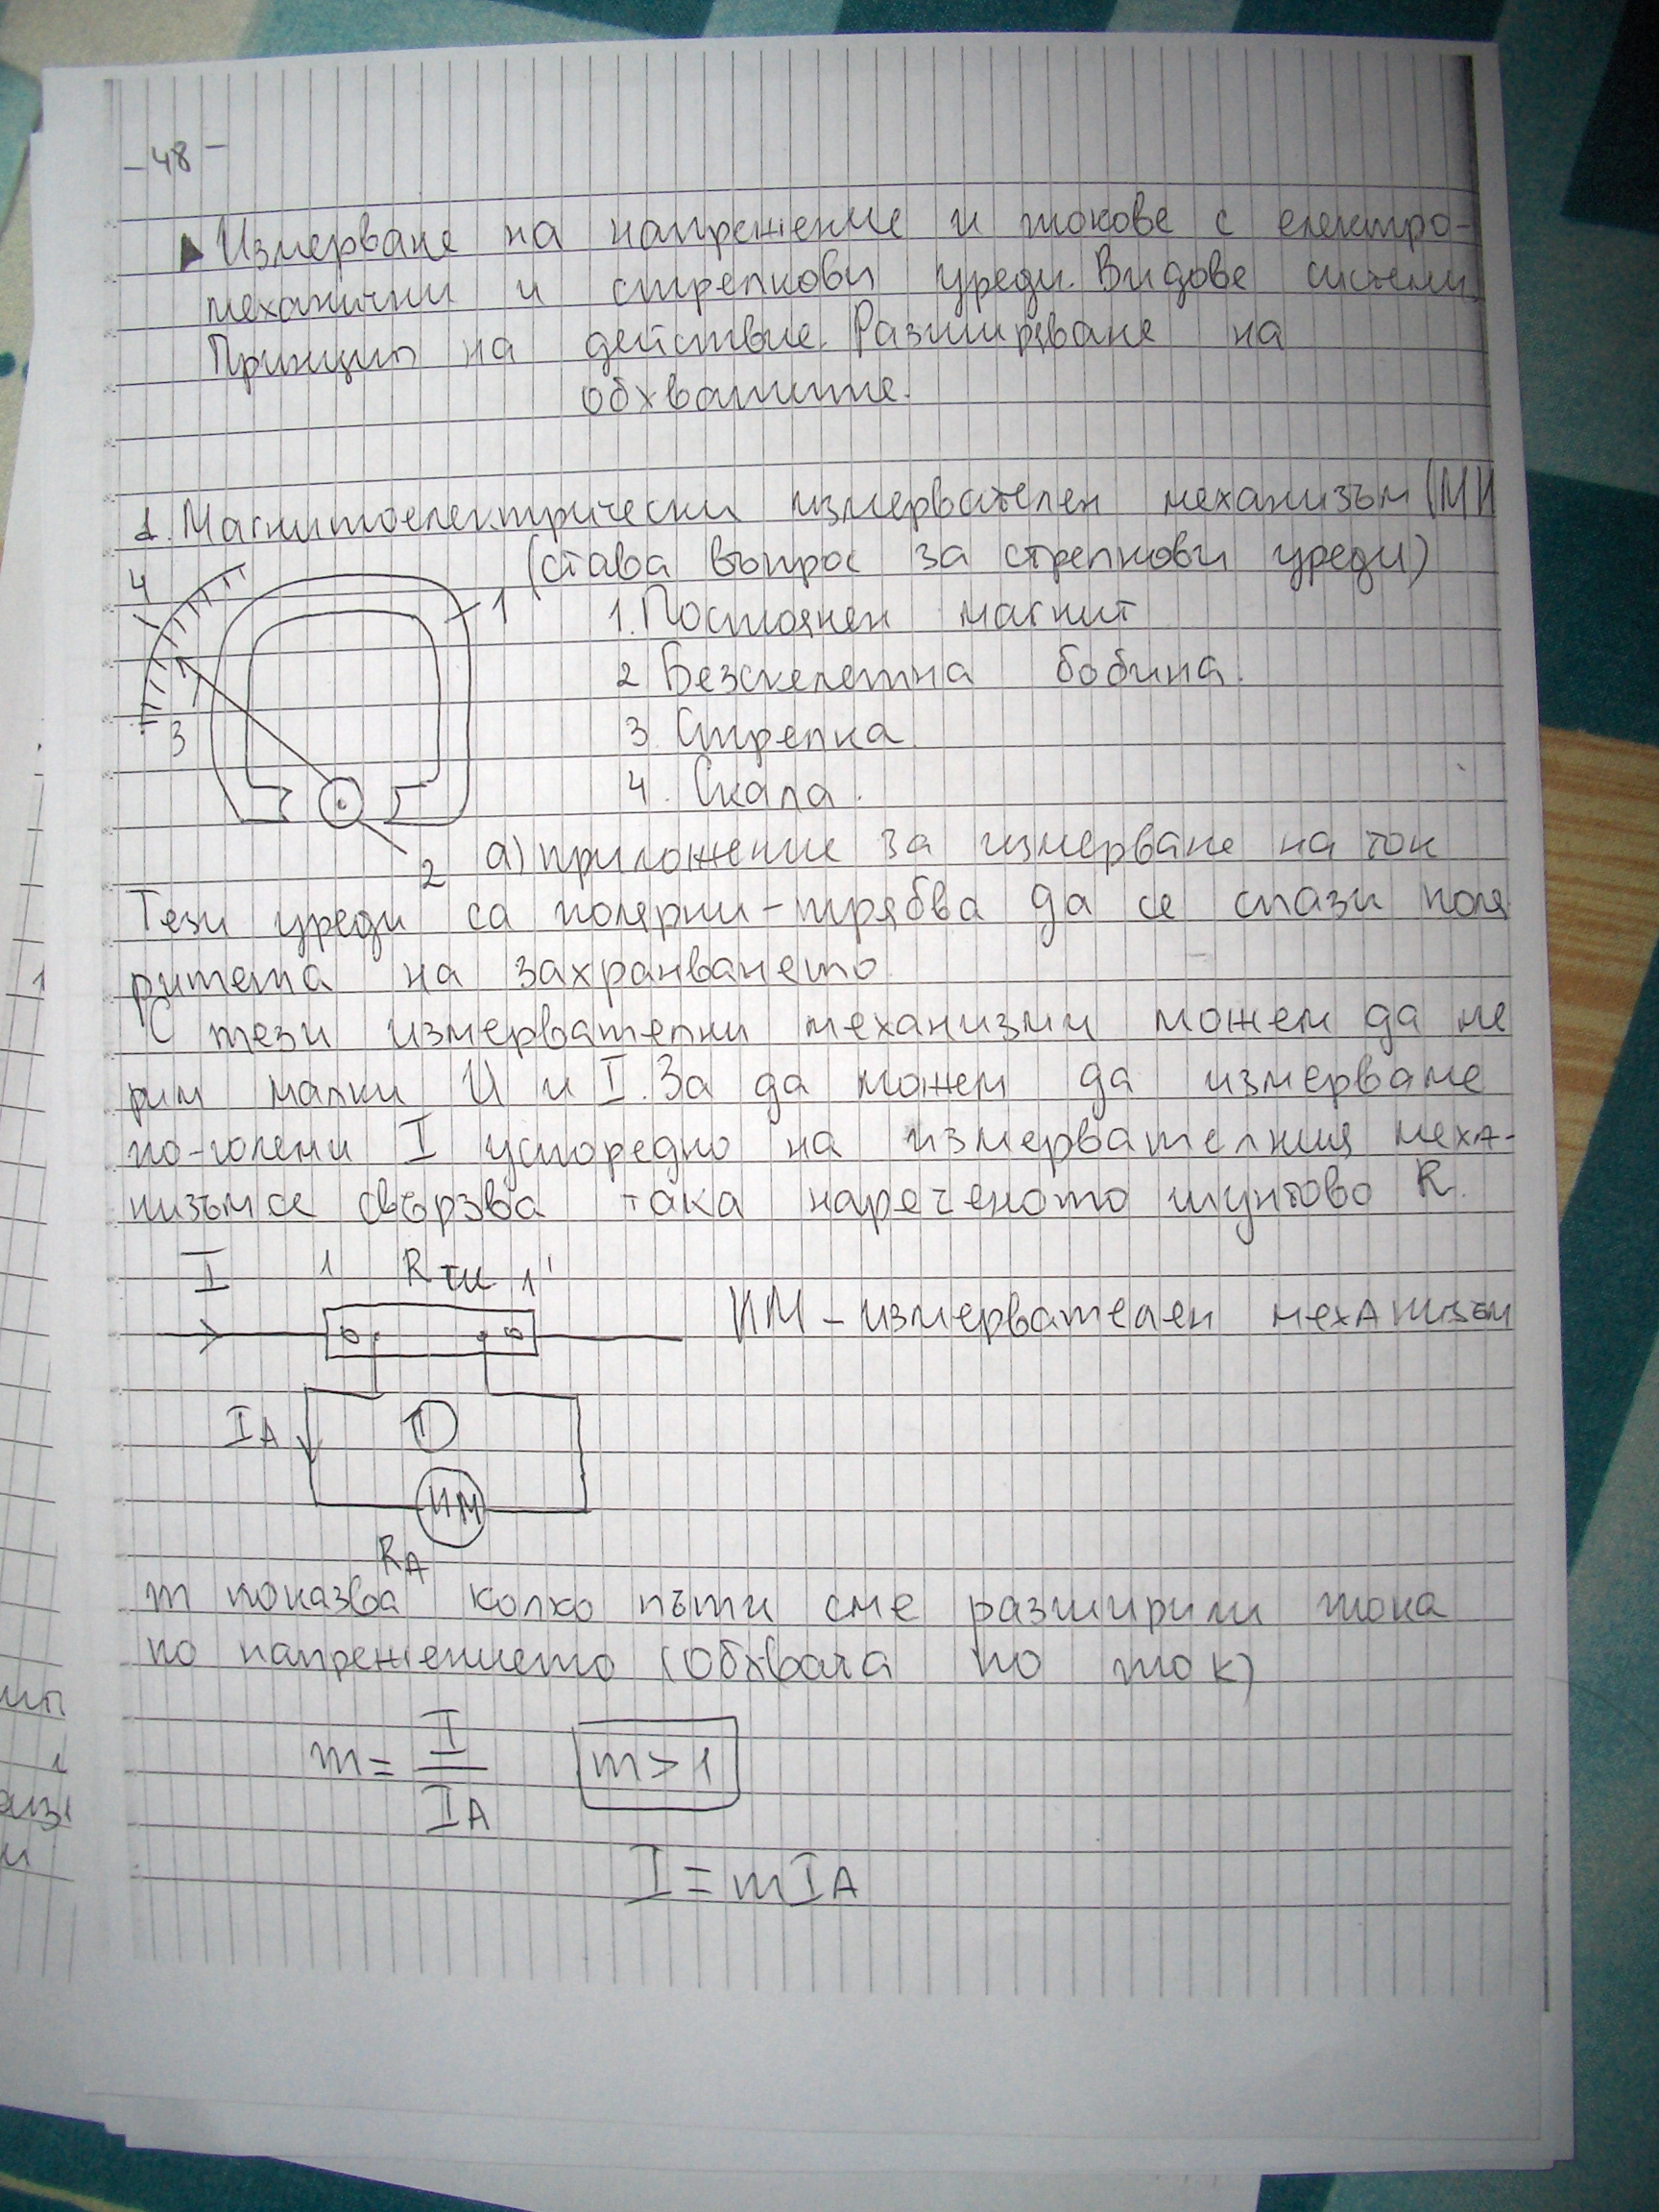 -48-
Измерване на напрежение и токове с електро-
механични и стрелкови уреди. Видове системи.
Принцип на действие. Разширяване на
обхватите.
1. Магнитоелектрически измервателен механизъм (МИ
(става въпрос за стрелкови уреди)
4
1
1. Постоянен магнит
2 Безскелетна бобина.
3. Стрелка
3
4. Скала.
2
а) приложение за измерване на ток
Тези уреди са полярни-трябва да се спази поля
ритета на захранването
С тези измервателни механизми можем да ме
рим малки U и I. За да можем да измерваме
по-големи I успоредно на измервателния меха-
низъм се свързва така нареченото шунтово R.
I 1 Rш 1'
ИМ-измервателен механизъм
IA
ИМ
RA
m показва колко пъти сме разширили тока
по напрежението (обхвата по ток)
m = I / IA m > 1
I = mIA